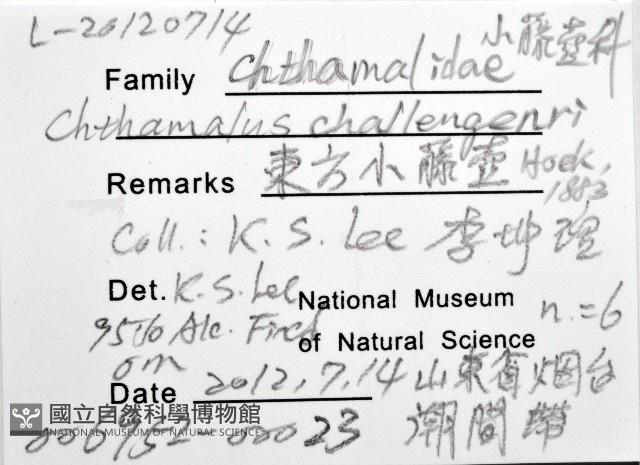 L-20120714
小藤壺科
Family Chthamalidae
Chthamalus challengenri
Remarks 東方小藤壺 Hoek, 1883
Coll.: K. S. Lee 李坤瑄
Det. K. S. Lee
National Museum of Natural Science n.=6
95% Alc. Fixed
om
Date 2012.7.14 山東省烟台
潮間帶
國立自然科學博物館
NATIONAL MUSEUM OF NATURAL SCIENCE
00023